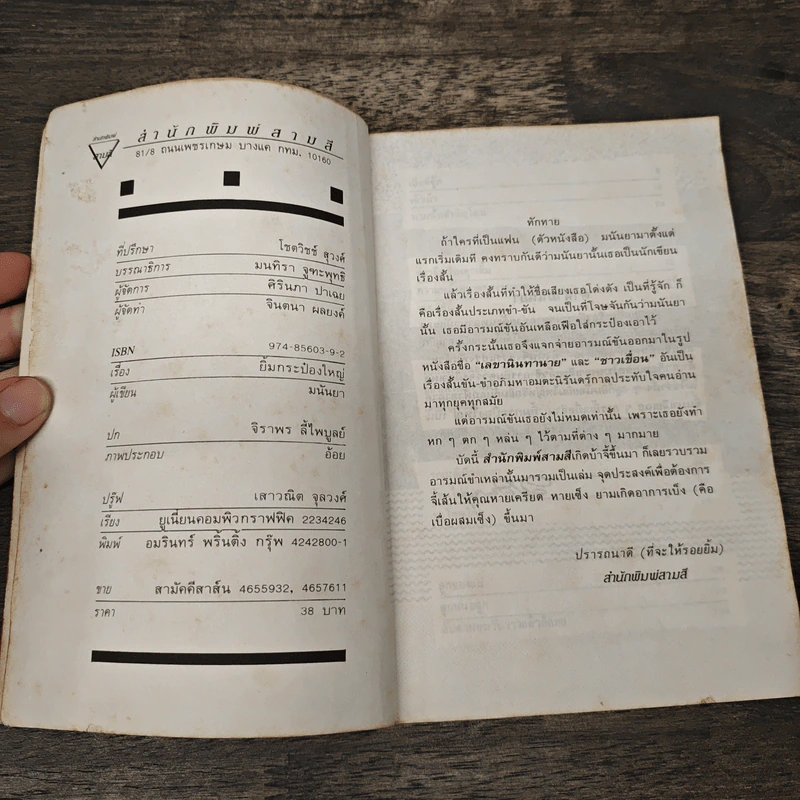 สำนักพิมพ์
สามสี
สำนักพิมพ์สามสี
81/8 ถนนเพชรเกษม บางแค กทม. 10160
ที่ปรึกษา โชตวิชช์ สุวงศ์
บรรณาธิการ มนทิรา จูฑะพุทธิ
ผู้จัดการ ศิรินภา ปาเฉย
ผู้จัดทำ จินตนา ผลยงค์
ISBN 974-85603-9-2
เรื่อง ยิ้มกระป๋องใหญ่
ผู้เขียน มนันยา
ปก จิราพร ลี้ไพบูลย์
ภาพประกอบ อ้อย
ปรู๊ฟ เสาวณิต จุลวงศ์
เรียง ยูเนี่ยนคอมพิวกราฟฟิค 2234246
พิมพ์ อมรินทร์ พริ้นติ้ง กรุ๊พ 4242800-1
ขาย สามัคคีสาส์น 4655932, 4657611
ราคา 38 บาท
ทักทาย
ถ้าใครที่เป็นแฟน (ตัวหนังสือ) มนันยามาตั้งแต่
แรกเริ่มเดิมที คงทราบกันดีว่ามนันยานั้นเธอเป็นนักเขียน
เรื่องสั้น
แล้วเรื่องสั้นที่ทำให้ชื่อเสียงเธอโด่งดัง เป็นที่รู้จัก ก็
คือเรื่องสั้นประเภทขำ-ขัน จนเป็นที่โจษจันกันว่ามนันยา
นั้น เธอมีอารมณ์ขันอันเหลือเฟือใส่กระป๋องเอาไว้
ครั้งกระนั้นเธอจึงแจกจ่ายอารมณ์ขันออกมาในรูป
หนังสือชื่อ "เลขานินทานาย" และ "ชาวเขื่อน" อันเป็น
เรื่องสั้นขัน-ขำอภิมหาอมตะนิรันดร์กาลประทับใจคนอ่าน
มาทุกยุคทุกสมัย
แต่อารมณ์ขันเธอยังไม่หมดเท่านั้น เพราะเธอยังทำ
หก ๆ ตก ๆ หล่น ๆ ไว้ตามที่ต่าง ๆ มากมาย
บัดนี้ สำนักพิมพ์สามสีเกิดบ้าจี้ขึ้นมา ก็เลยรวบรวม
อารมณ์ขำเหล่านั้นมารวมเป็นเล่ม จุดประสงค์เพื่อต้องการ
จี้เส้นให้คุณหายเครียด หายเซ็ง ยามเกิดอาการเบ็ง (คือ
เบื่อผสมเซ็ง) ขึ้นมา
ปรารถนาดี (ที่จะให้รอยยิ้ม)
สำนักพิมพ์สามสี